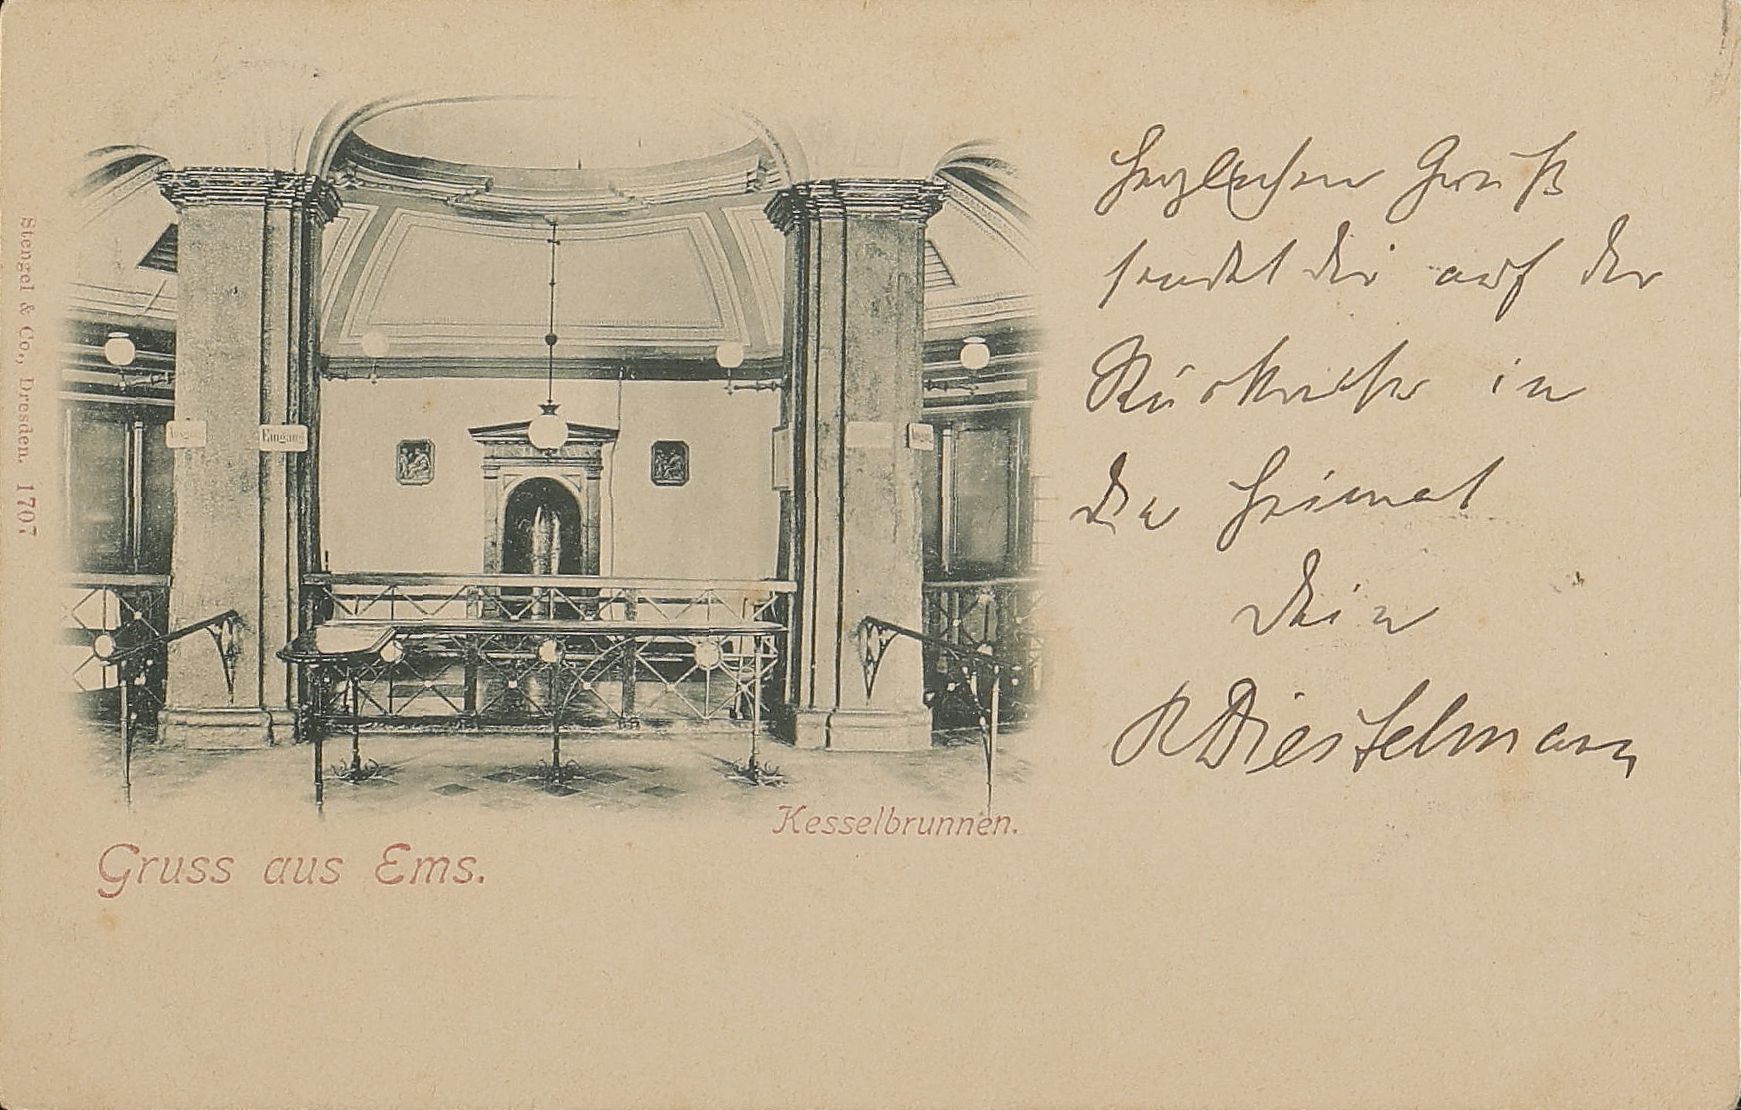 Stengel & Co., Dresden. 1707
Eingang
Kesselbrunnen.
Gruss aus Ems.
Herzlichen Gruß
sendet dir auf der
Rückreise in
die Heimat
Dein
R Diestelmann